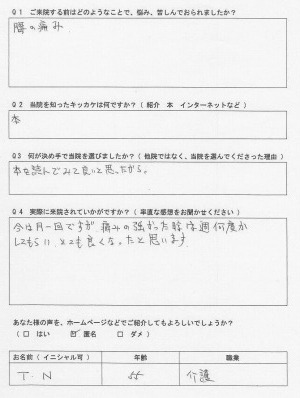 Q1 ご来院する前はどのようなことで、悩み、苦しんでおられましたか?
腰の痛み
Q2 当院を知ったキッカケは何ですか?( 紹介 本 インターネットなど )
本
Q3 何が決め手で当院を選びましたか?( 他院ではなく、当院を選んでくださった理由 )
本を読んでみて良いと思ったから。
Q4 実際に来院されていかがですか?( 率直な感想をお聞かせください )
今は月一回ですが 痛みの強かった時は週何度か
してもらい、とても良くなったと思います
あなた様の声を、ホームページなどでご紹介してもよろしいでしょうか?
( □ はい ☑ 匿名 □ ダメ )
お名前( イニシャル可 ) 年齢 職業
T.N 55 介護